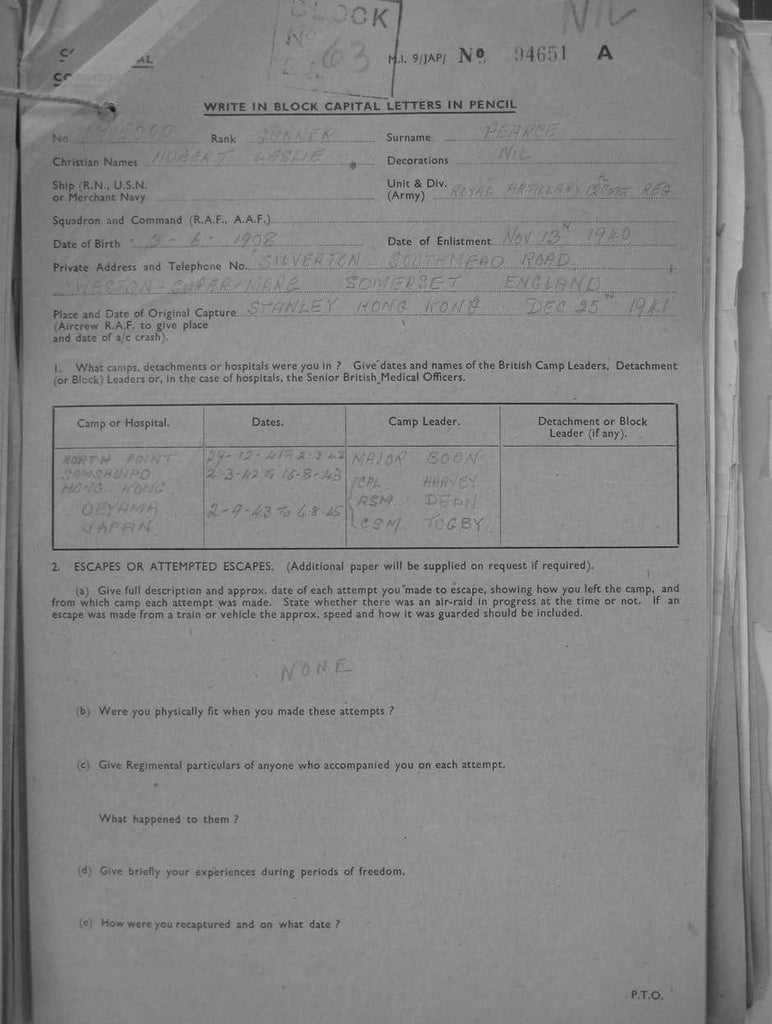 BLOCK
No
63
M.I. 9/JAP/ No. 94651 A
WRITE IN BLOCK CAPITAL LETTERS IN PENCIL
No Rank GUNNER Surname PEARCE
Christian Names LESLIE Decorations NIL
NIL
Ship (R.N., U.S.N. or Merchant Navy
Unit & Div. (Army) ROYAL ARTILLERY REG
Squadron and Command (R.A.F., A.A.F.)
Date of Birth 3-6-1908 Date of Enlistment NOV 13th 1940
Private Address and Telephone No. SILVERTON SOUTHMEAD ROAD
WESTON-SUPER-MARE SOMERSET ENGLAND
Place and Date of Original Capture STANLEY HONG KONG DEC 25th 1941
(Aircrew R.A.F. to give place
and date of a/c crash).
1. What camps, detachments or hospitals were you in ? Give dates and names of the British Camp Leaders, Detachment
(or Block) Leaders or, in the case of hospitals, the Senior British Medical Officers.
Camp or Hospital. Dates. Camp Leader. Detachment or Block Leader (if any).
NORTH POINT 29-12-41-2-3-42 MAJOR BOON
SAMSHUIPO 2-3-42 TO 16-8-43 CPL HARVEY
HONG KONG RSM DEAN
OEYAMA 2-9-43 TO 6-8-45 CSM TUGBY
JAPAN
2. ESCAPES OR ATTEMPTED ESCAPES. (Additional paper will be supplied on request if required).
(a) Give full description and approx. date of each attempt you made to escape, showing how you left the camp, and
from which camp each attempt was made. State whether there was an air-raid in progress at the time or not. If an
escape was made from a train or vehicle the approx. speed and how it was guarded should be included.
NONE
(b) Were you physically fit when you made these attempts ?
(c) Give Regimental particulars of anyone who accompanied you on each attempt.
What happened to them ?
(d) Give briefly your experiences during periods of freedom.
(e) How were you recaptured and on what date ?
P.T.O.